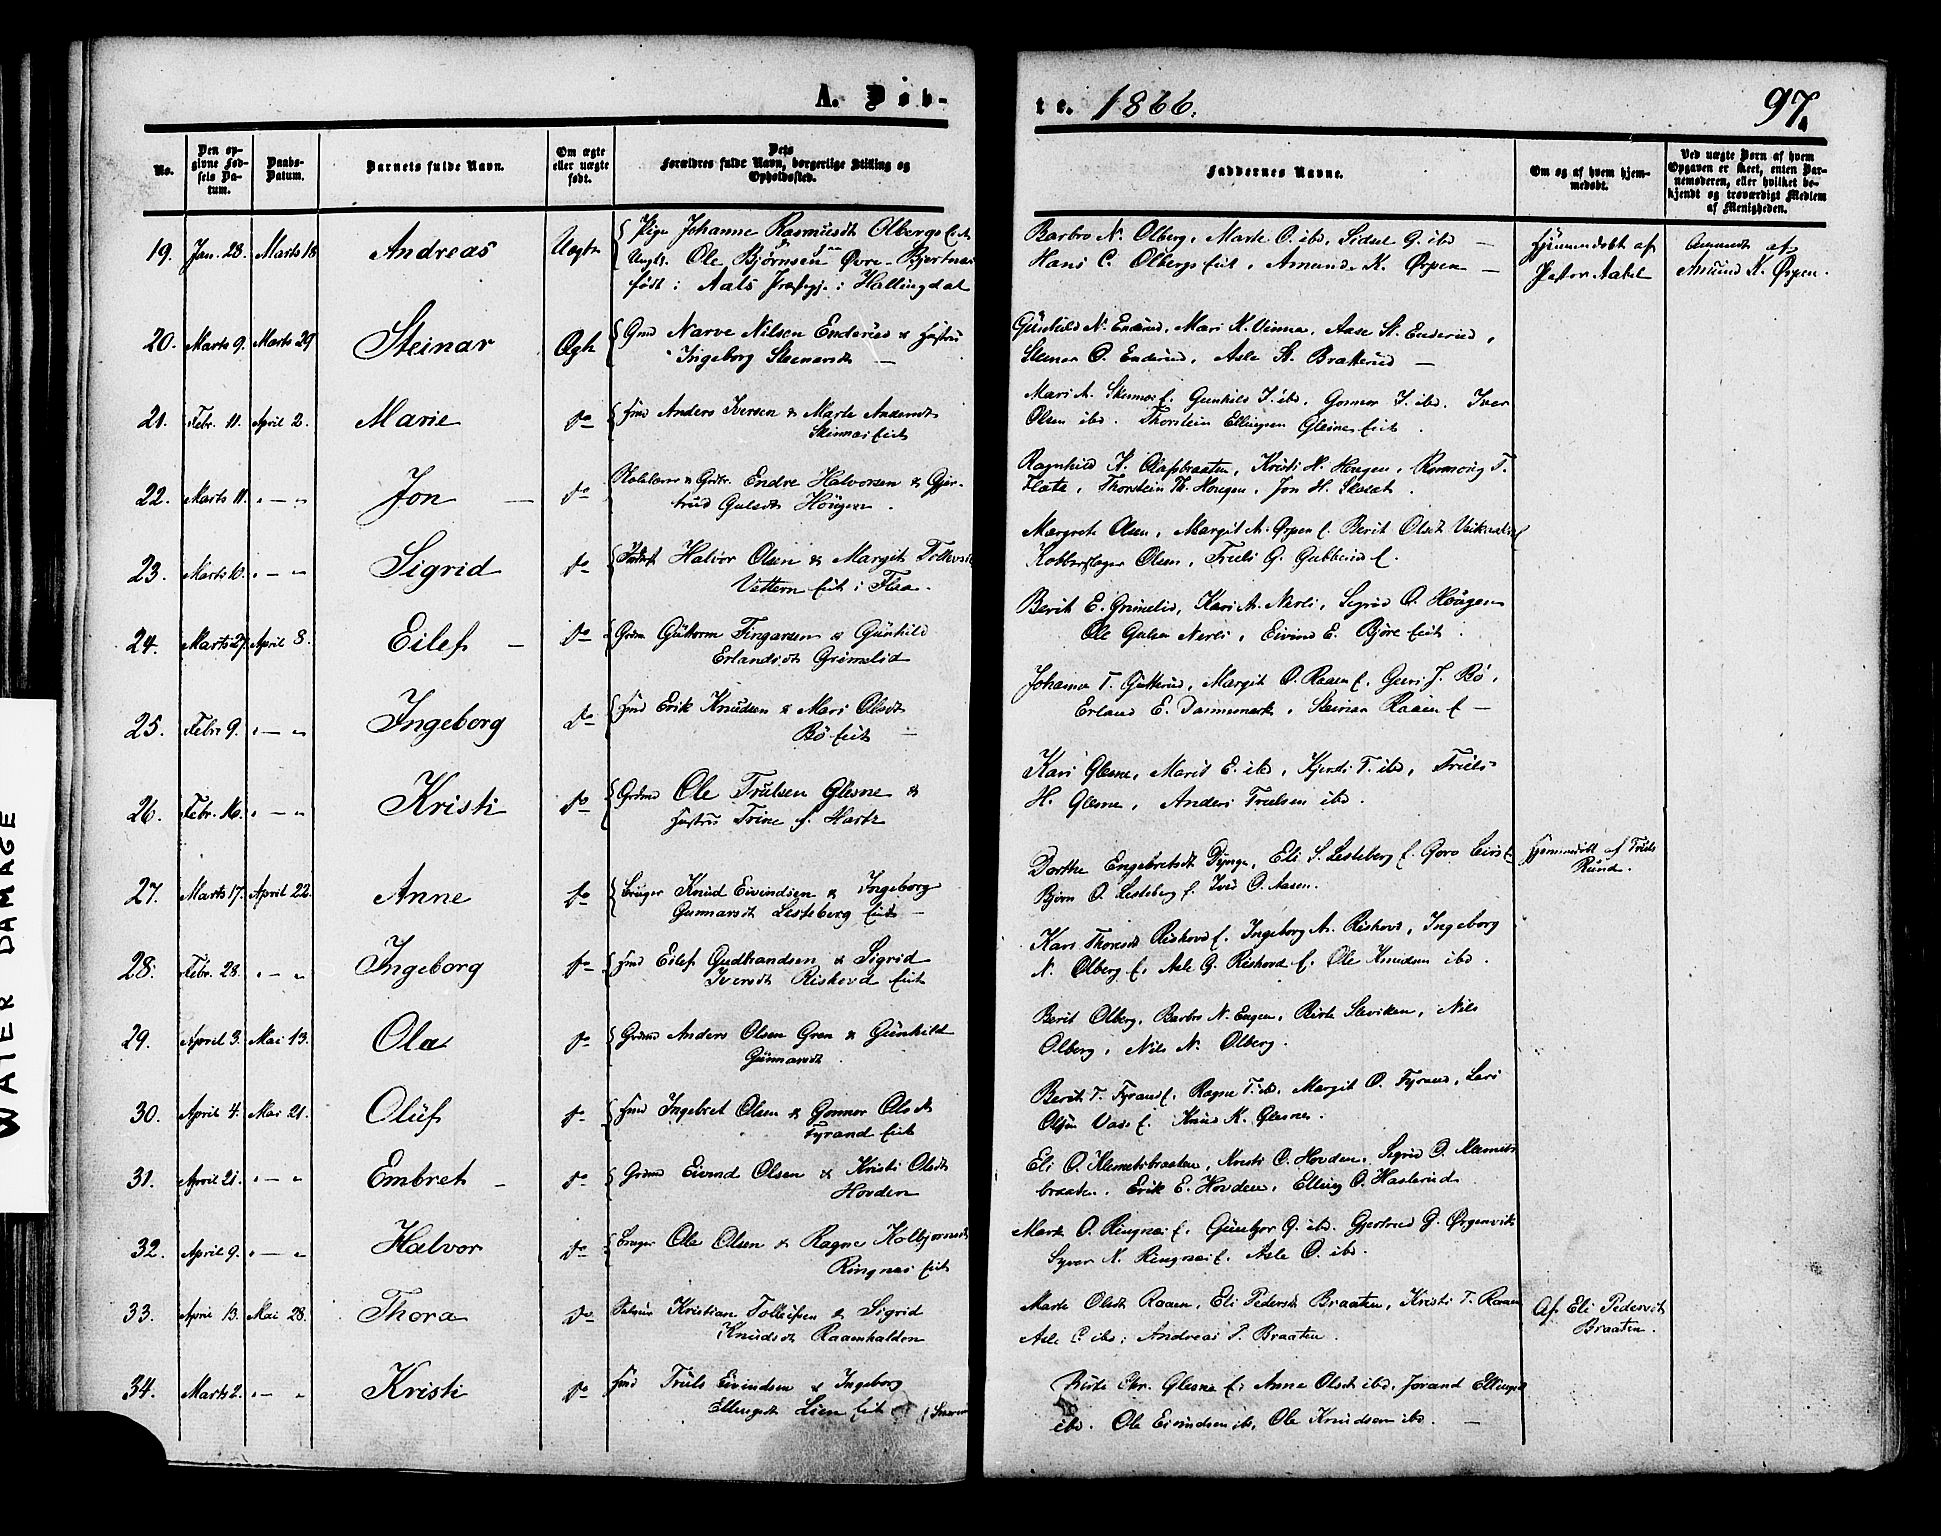 A. Døb-
te. 1866.
97.
No.
Den op-
givne Fød-
sels Da-
tum.
Daabs-
Datum.
Barnets fulde Navn.
Om ægte
eller uægte
født.
Dets
Forældres fulde Navn, borgerlige Stilling og
Opholdssted.
Faddernes Navne.
Om og af hvem hjem-
medøbt.
Ved uægte Børn af hvem
Opgaven er skeet, enten Bar-
nemoderen, eller hvilket be-
kjendt og troværdigt Medlem
af Menigheden.
19. Jan. 28. Marts 18 Andreas Uegte
Pige Johanne Rasmusdt Olbergs Eie
Ungk. Ole Bjørnsen Øvre-
født i Aals Præstegj. i Hallingdal
Barbro N. Olberg, Marte O. ibd, Sidsel G. ibd —
Hans C. Olbergs Eie, Amund K. Ørpen —
Hjemmedøbt af
Pastor
af
Amund K. Ørpen.
20. Marts 9. Marts 29 Steinar Ægte
Gmd Narve Nilsen Enderud & Hustru
Ingeborg —
Gunhild N. Enderud, Mari K. Vinna, Aase St. Enderud,
Steinar O. Enderud, Asle St. Bratterud —
21. Febr. 11. April 2. Marie do
Anders Iversen & Marte Andersdt
Mari A. Gunhild I. ibd, Gonnor I. ibd. Iver
Olsen ibd. Thorstein Ellingsen Glesne Eie.
22. Marts 11. " — " Jon — do
Endre Halvorsen & Gjer-
trud Gulsdt Høugen.
Ragnhild A. Olafsbraaten, Kristi H. Hougen, T.
Flata, Thorstein Th. Hougen, Jon H.
23. Marts 10. " — " Sigrid do
Halvor Olsen & Margit
Vettern Eie i Flaa.
Margrete Olsen, Margit A. Ørpen E. Berit Olsdt
Kobberslager Olsen, Truls G. Gubberud E.
24. Marts 27. April 8. Eilef — do
Grdm Guttorm Fingarsen & Gunhild
Erlandsdt Grimelid
Berit E. Grimelid, Kari A. Nerli, Sigrid O. Høugen
Ole Gulsen Nerli, Eivind E. Bjøre Eie.
25. Febr 9. " — " Ingeborg do
Erik Knudsen & Mari Olsdt
Bø Eie —
Johanna T. Margit O. Raaen E. Guri J. Bø,
Erland E. Steinar Raaen E —
26. Febr. 16. " — " Kristi do
Grdmd Ole Trulsen Glesne &
Hustru Trine f. Hartz
Kari Glesne, Marit E. ibd, T. ibd, Truls
H. Glesne, Anders Trulsen ibd.
27. Marts 17. April 22. Anne do
Bruger Knud Eivindsen & Ingeborg
Gunnarsdt Lesteberg Eie —
Dorthe Engebretsdt Eli S. Lesteberg E. Goro
Bjørn O. Lesteberg E. O. Aasen.
Hjemmedøbt af Truls
Rund.
28. Febr. 28. " — " Ingeborg do
Eilef Gudbrandsen & Sigrid
Iversdt Riskovd Eie
Kari Thoresdt Riskovd E. Ingeborg A. Riskovd, Ingeborg
N. Olberg E. Asle G. Riskovd E. Ole Knudsen ibd.
29. April 3. Mai 13. Ola do
Grdmd Anders Olsen Gren & Gunhild
Gunnarsdt.
Berit Olberg, Barbro N. Engen, Birte Sleviken, Nils
Olberg, Nils N. Olberg.
30. April 4. Mai 21. Oluf do
Ingebret Olsen & Gonnor Olsdt
Fyrand Eie
Berit T. Fyrand E. Ragne T. ibd, Margit O. Fyrand, Lars
Vass E. Knud K. Glesne.
31. April 21. " — " Embret — do
Grdmd Eivind Olsen & Kristi Olsdt
Hovden
Eli O. Klemetsbraaten, Kristi O. Hovden, Sigrid O. Klemets-
braaten. Erik E. Hovden, Elling O. Haslerud
32. April 9. " — " Halvor do
Bruger Ole Olsen & Ragne Kolbjørnsdt
Ringnæs Eie
Marte O. Ringnæs E. Guntzor G. ibd. Gjertrud G. Ørgenvik
Syver N. Ringnæs E. Asle O. ibd.
33. April 13. Mai 28. Thora do
Kristian Tollefsen & Sigrid
Knudsdt Raaenhalden
Marte Olsdt Raaen, Eli Pedersdt Braaten, Kristi T. Raaen
Asle ibd, Andreas P. Braaten.
Af Eli Pedersdt
Braaten.
34. Marts 2. " — " Kristi do
Truls Eivindsen & Ingeborg
Ellingsdt Lien Eie
Birte Chr. Glesne E. Anne Olsdt ibd, Jorand Ellingsd
ibd. Ole Eivindsen ibd, Ole Knudsen ibd. —
WATER DAMAGE